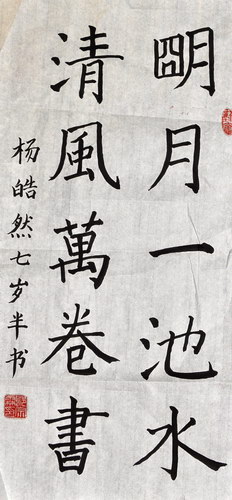 明月一池水
清風萬卷書
杨皓然七岁半书